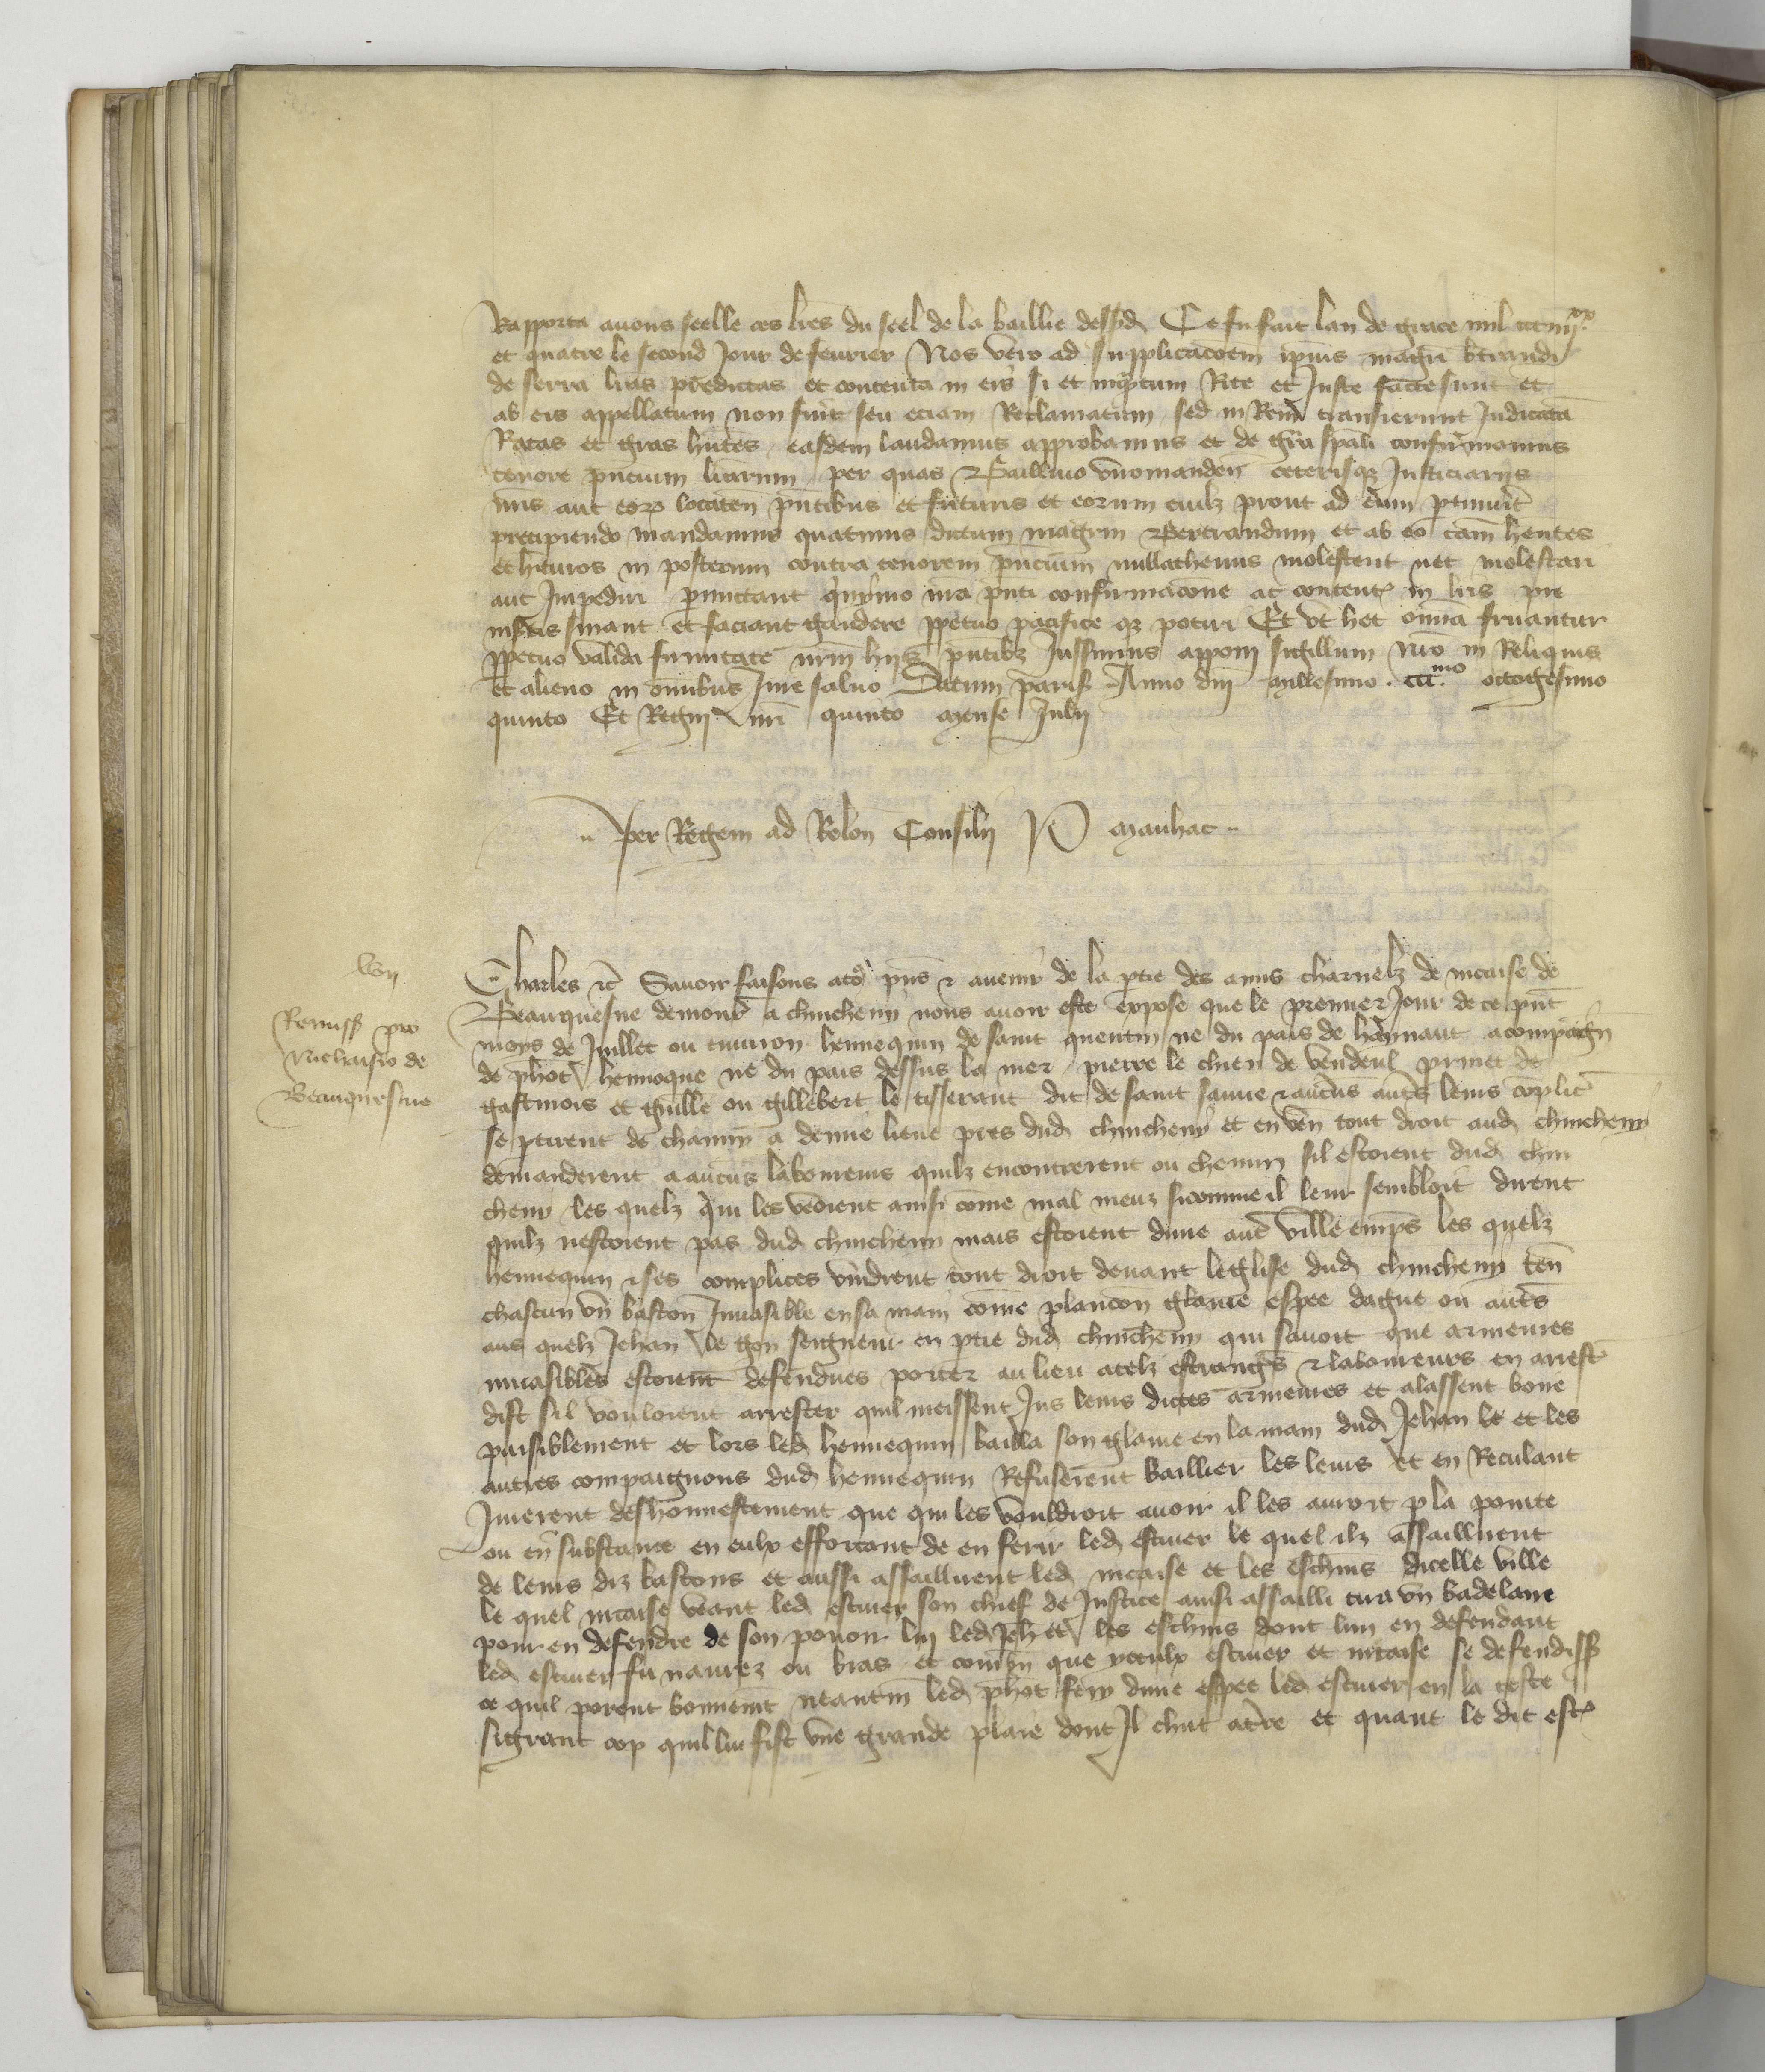 Rapporta avons seelle ces lres du seel de la baillie dessusd Ce fu fait lan de grace mil ccciiij xx
et quatre le second Jour de fevrier Nos vero ad supplicacoem ipius magri btrandi
de serra lras predictas et contenta in eis si et inqntum Rite et Juste facte sunt et
ab eis appellatum non fuit seu eciam Reclamatum sed in Rem transierunt Judicatā
Ratas et gras hntes easdem laudamus approbamus et de gra spali confirmamus
tenore pncium lrarum per quas Baillivo viromanden ceterisqz Justiciariis
nris aut eorz locaten pntibus et futuris et eorum cuilz prout ad eum ptinuit
precipiendo mandamus quatinus dictum magrm Bertrandum et ab eo cam hentes
et hituros in posterum contra tenorem pncium nullathenus molestent nec molestari
aut Impediri pmittant quinymo nra pnti confirmacone ac content in lris pre
insertis sinant et faciant gaudere ppetuo pacifice qz potiri Et vt hec omia fruantur
ppetuo valida firmitate nrm hijs pntibz Jussimus apponi sigillum Nro in Reliquis
et alieno in omnibus Jure salvo Datum paris Anno dni millesimo ccc mo octogesimo
quinto Et Regni nri quinto mense Julij
per Regem ad Relon Consilij P Manhac
Charles etc Savoir faisons atos pns et avenir de la ptie des amis charnelz de nicaise de
Beauquesne demour a chincheny nous avoir este expose que le premier Jour de ce pnt
moys de Juillet ou environ hennequin de saint quentin ne du pais de haynnaut acompaign
de phot hennoque ne du pais dessus la mer pierre le chien de vendeul prinet de
gastinois et guille ou gillebert le tisserant dit de saint sauve et aucuns autrs leurs coplic
se ptirent de channy a demie lieue pres dud chincheny et en ven tout droit aud chincheny
demanderent a aucus laboureurs quilz encontrerent ou chemin sil estoient dud chin
cheny les quelz qui les veoient ainsi come mal meuz sicomme il leur sembloit dirent
quilz nestoient pas dud chincheny mais estoient dune autre ville emps les quelz
hennequin et ses complices vindrent tout droit devant leglise dud chincheny ten
chascun vn baston Invasible en sa main come plancon glaive espee dague ou autrs
aus quelz Jehan le gon seigneur en ptie dud chincheny qui savoit que armeures
invasibles estoient defendues porter au lieu atelz estrangs et laboureurs en arrest
dist sil vouloient arrester quil meissent Jus leurs dictes armeures et alassent bone
paisiblement et lors led hennequin bailla son glaive en la main dud Jehan le et les
autres compaignons dud hennequin Refuserent baillier les leurs et en Reculant
Jurerent deshonnestement que qui les vouldroit avoir il les auroit p la pointe
ou en substance en eulx efforcant de en ferir led escuier le quel ilz assaillirent
de leurs diz bastons et aussi assaillirent led nicaise et les eschvis dicelle ville
le quel nicaise veant led escuier son chief de Justice ainsi assailli tira vn badelaire
pour en defendre de son povoir lui led Jeh et les eschvis dont lun en defendant
led escuier fu navrez ou bras et combn que yceulx escuier et nicaise se defendiss
ce quil porent bonnemt neantm led phot fery dune espee led escuier en la teste
sigrant cop quil lui fist vne grande plaie dont Il chut atrre et quant le dit esc
lvij
Remiss pro
Nichasio de
Beauquesne